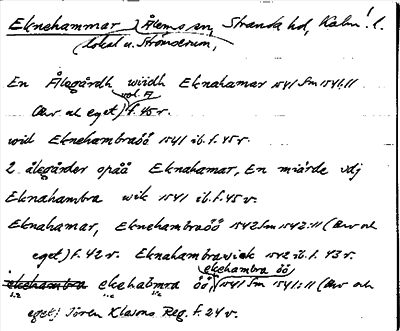 Eknehammar, Ålems sn, Stranda hd, Kalm. l.
(lokal u. Strömserum,
En Ålagårdh widh Eknahamar 1541 Sm 1541:11
vol. A
(Arv och eget) f. 45 r.
wid Eknehambraöö 1541 ib. f. 45 r.
2 ålegårder opåå Eknahamar, En miärde vdj
Eknahambra wik 1541 ib. f. 45 v.
Eknahamar, Eknehambraöö 1542 Sm 1542:11 (Arv och
eget) f. 42 v. Eknahambrawiek 1542 ib. f. 43 v.
ekehambra öö
ekehambra ekehabmra öö, 1541 Sm 1541:11 (Arv och
eget) Jören Klasons Reg. f. 24 v.